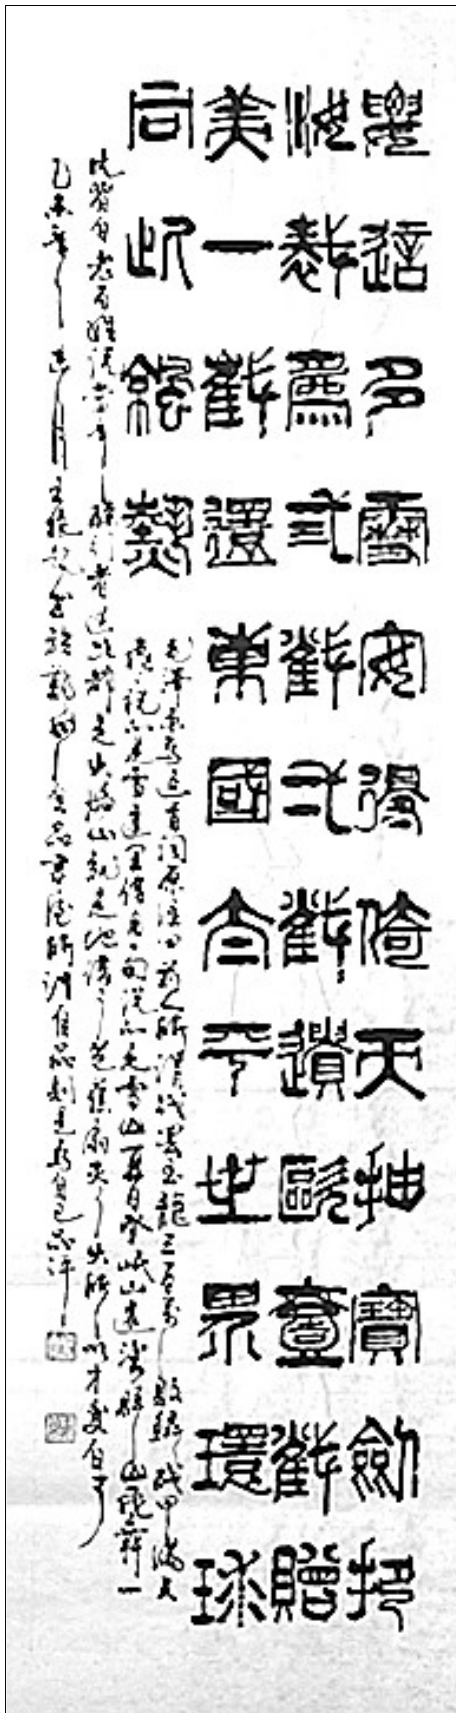 要這多雪安得倚天抽寶劍把
汝裁為弎截弌截遺歐壹截贈
美一截還東國太平世界環球
同此涼熱
毛澤東這首詞原注曰前人所謂戰罷玉龍三百萬敗鱗殘甲滿天
飛說的是飛雪這里借用一句說的是雪山夏日登岷山遠望群山飛舞一
片皆白老百姓說當年孫行者過此都是火焰山就是他借了芭蕉扇滅了火所以才變白了
乙未年